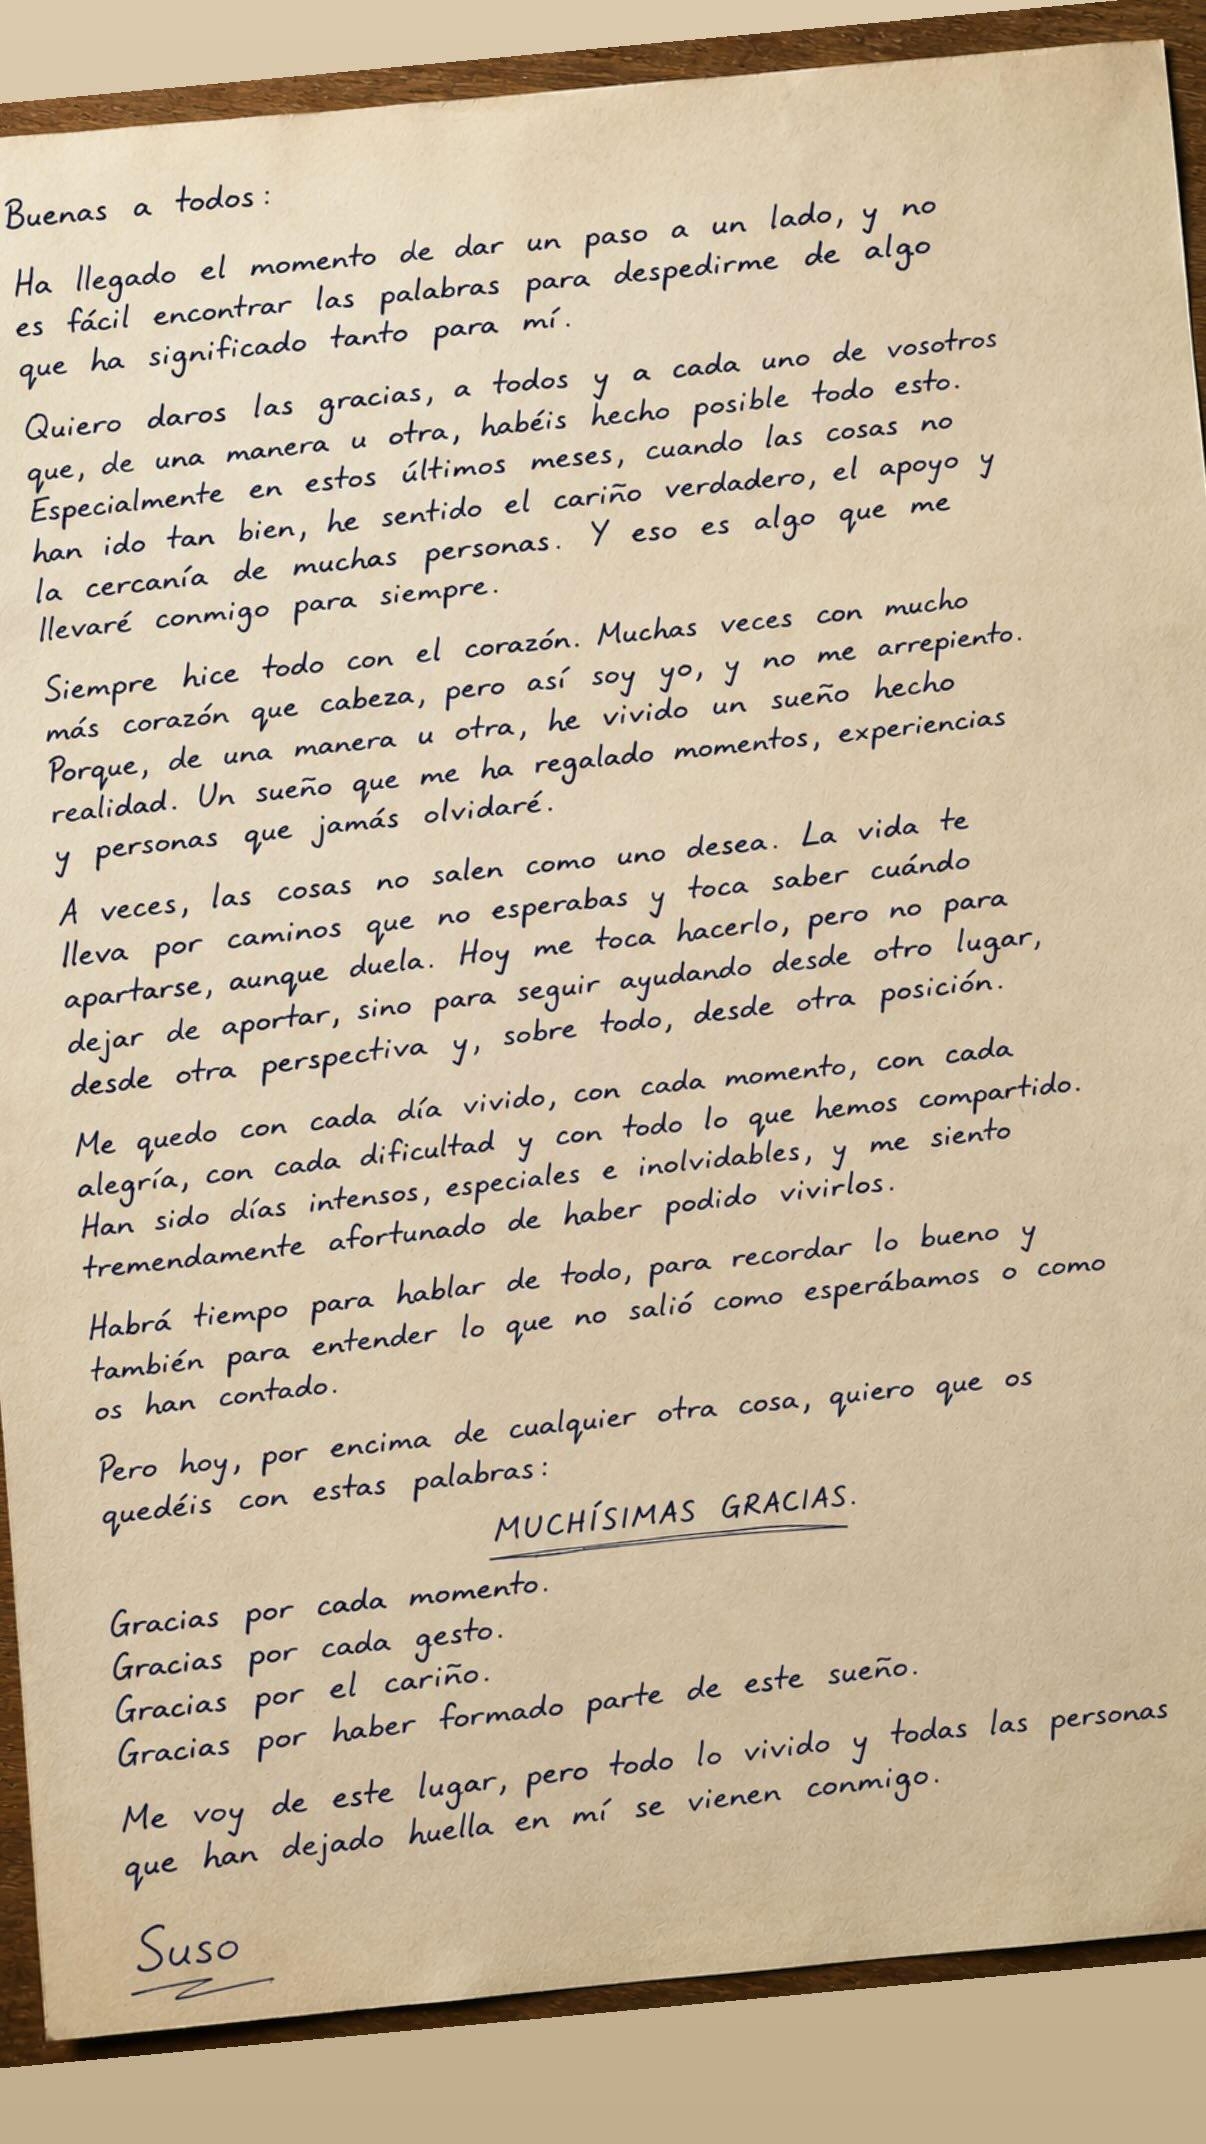 Buenas a todos:
Ha llegado el momento de dar un paso a un lado, y no
es fácil encontrar las palabras para despedirme de algo
que ha significado tanto para mí.
Quiero daros las gracias, a todos y a cada uno de vosotros
que, de una manera u otra, habéis hecho posible todo esto.
Especialmente en estos últimos meses, cuando las cosas no
han ido tan bien, he sentido el cariño verdadero, el apoyo y
la cercanía de muchas personas. Y eso es algo que me
llevaré conmigo para siempre.
Siempre hice todo con el corazón. Muchas veces con mucho
más corazón que cabeza, pero así soy yo, y no me arrepiento.
Porque, de una manera u otra, he vivido un sueño hecho
realidad. Un sueño que me ha regalado momentos, experiencias
y personas que jamás olvidaré.
A veces, las cosas no salen como uno desea. La vida te
lleva por caminos que no esperabas y toca saber cuándo
apartarse, aunque duela. Hoy me toca hacerlo, pero no para
dejar de aportar, sino para seguir ayudando desde otro lugar,
desde otra perspectiva y, sobre todo, desde otra posición.
Me quedo con cada día vivido, con cada momento, con cada
alegría, con cada dificultad y con todo lo que hemos compartido.
Han sido días intensos, especiales e inolvidables, y me siento
tremendamente afortunado de haber podido vivirlos.
Habrá tiempo para hablar de todo, para recordar lo bueno y
también para entender lo que no salió como esperábamos o como
os han contado.
Pero hoy, por encima de cualquier otra cosa, quiero que os
quedéis con estas palabras:
MUCHÍSIMAS GRACIAS.
Gracias por cada momento.
Gracias por cada gesto.
Gracias por el cariño.
Gracias por haber formado parte de este sueño.
Me voy de este lugar, pero todo lo vivido y todas las personas
que han dejado huella en mí se vienen conmigo.
Suso